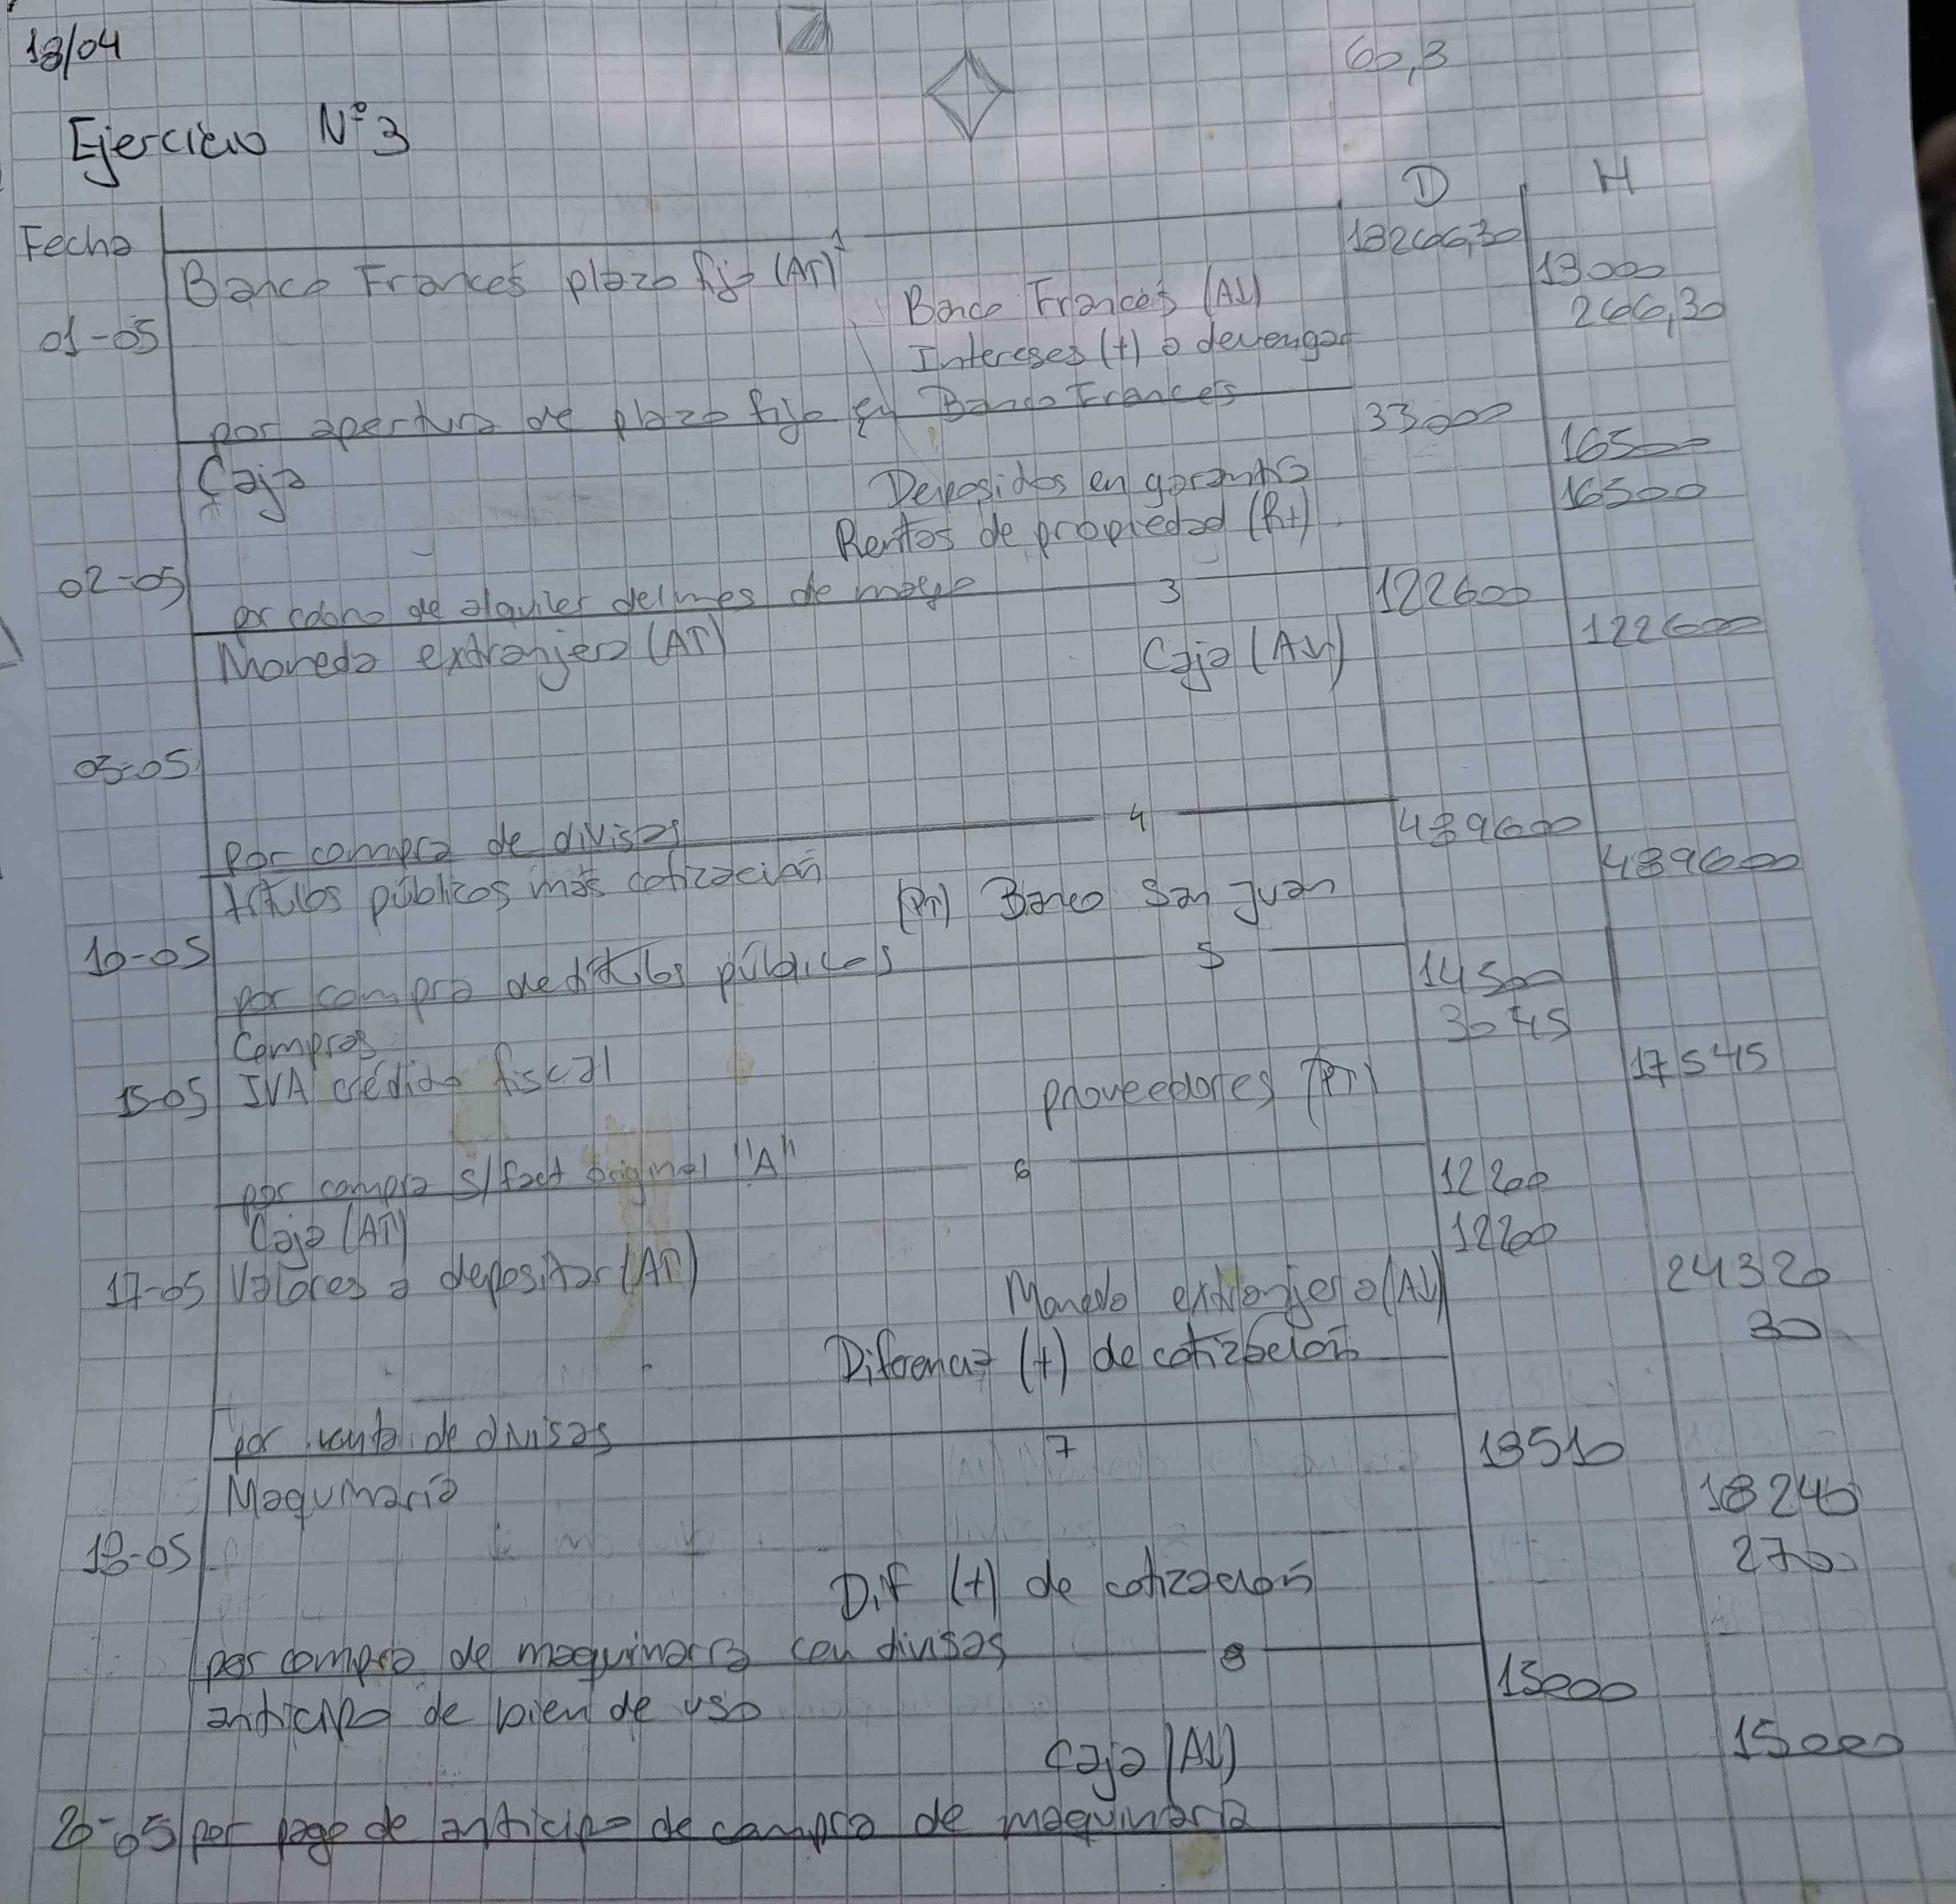 18/04
60,3
Ejercicio N°3
D H
Fecha 1 13266,30
Banco Francés plazo fijo (A↑)
Banco Francés (A↓) 13000
01-05 Intereses (+) a devengar 266,30
por apertura de plazo fijo en Banco Francés
Caja 33000
Depósitos en garantía 16500
Rentas de propiedad (R+) 16500
02-05
por cobro de alquiler del mes de mayo 3
Moneda extranjera (A↑) 122600
Caja (A↓) 122600
03-05
por compra de divisas 4
títulos públicos más cotización 489600
(P↑) Banco San Juan 489600
10-05
por compra de títulos públicos 5
Compras 14500
15-05 IVA crédito fiscal 3045
proveedores (P↑) 17545
por compra s/fact original "A" 6
Caja (A↑) 12200
17-05 Valores a depositar (A↑) 12200
Moneda extranjera (A↓) 24320
Diferencia (+) de cotización 30
por venta de divisas 7
Maquinaria 18510
18240
18-05
Dif (+) de cotización 2700
por compra de maquinaria con divisas 8
anticipo de bien de uso 15000
Caja (A↓) 15000
20-05 por pago de anticipo de compra de maquinaria